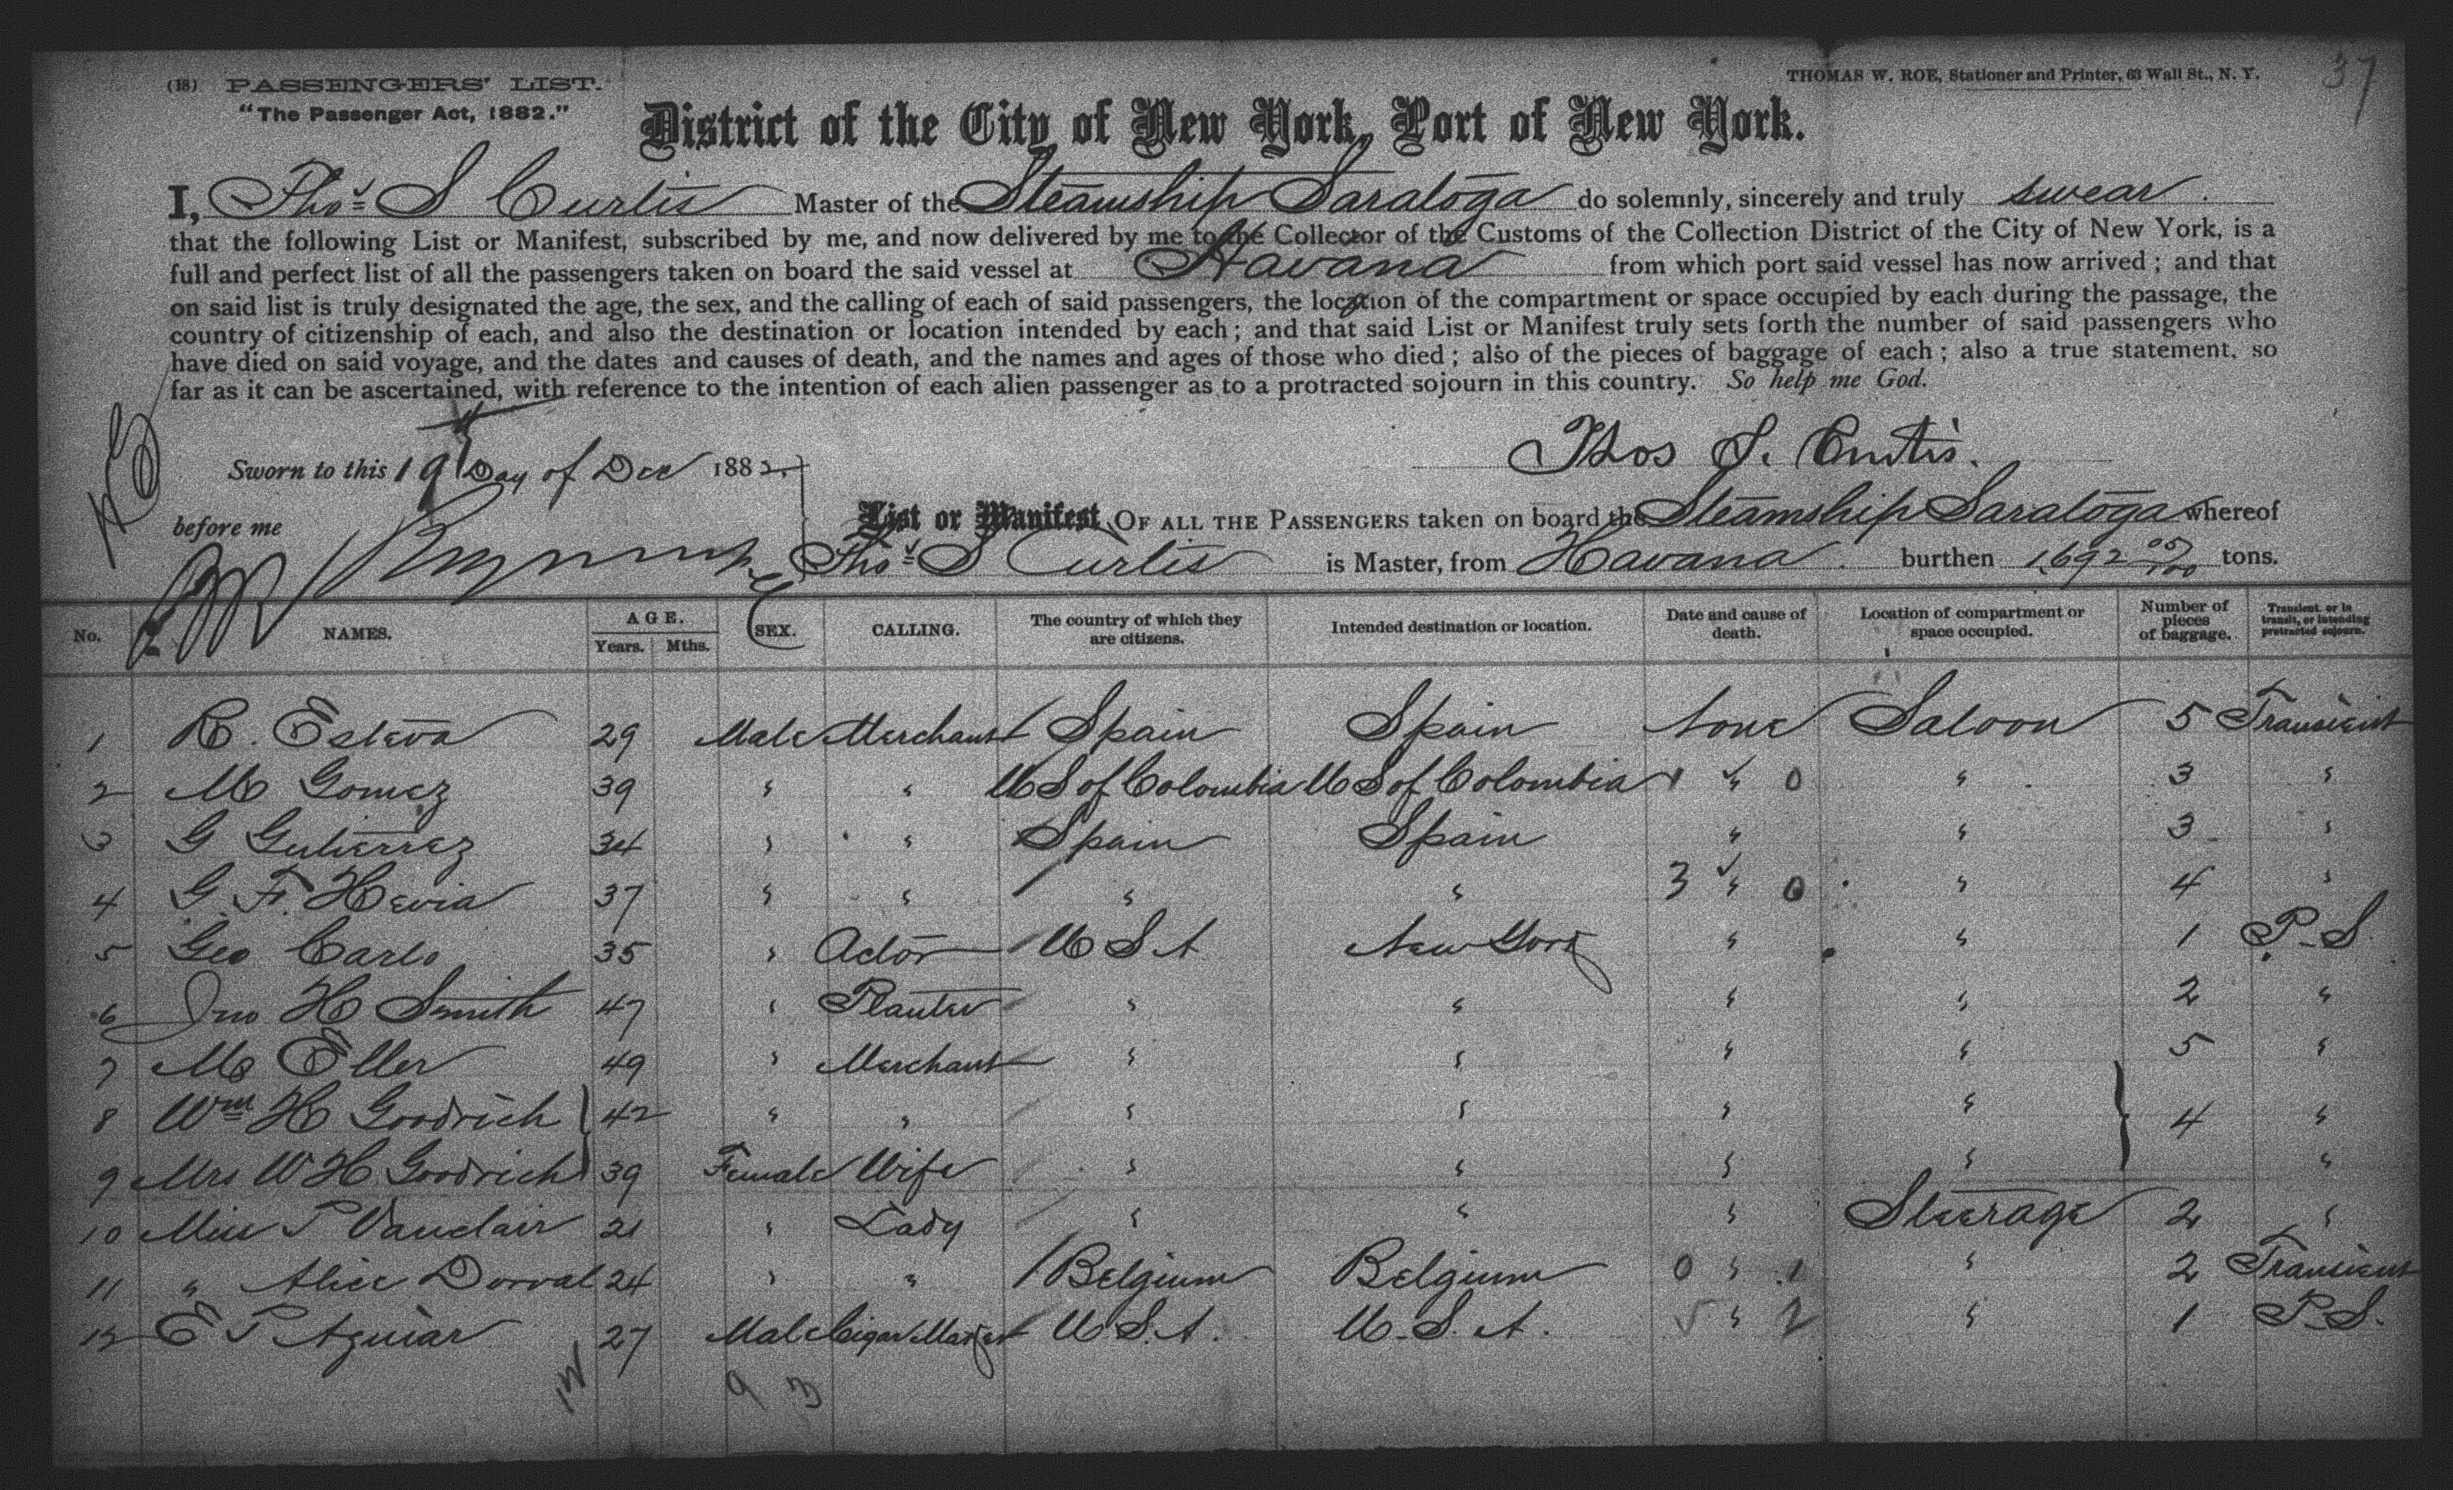 (18) PASSENGERS' LIST.
THOMAS W. ROE, Stationer and Printer, 63 Wall St., N. Y.
37
"The Passenger Act, 1882."
District of the City of New York, Port of New York.
I, Thos S Curtis Master of the Steamship Saratoga do solemnly, sincerely and truly swear.
that the following List or Manifest, subscribed by me, and now delivered by me to the Collector of the Customs of the Collection District of the City of New York, is a
full and perfect list of all the passengers taken on board the said vessel at Havana from which port said vessel has now arrived; and that
on said list is truly designated the age, the sex, and the calling of each of said passengers, the location of the compartment or space occupied by each during the passage, the
country of citizenship of each, and also the destination or location intended by each; and that said List or Manifest truly sets forth the number of said passengers who
have died on said voyage, and the dates and causes of death, and the names and ages of those who died; also of the pieces of baggage of each; also a true statement, so
far as it can be ascertained, with reference to the intention of each alien passenger as to a protracted sojourn in this country. So help me God.
Thos S. Curtis.
Sworn to this 19 Day of Dec 1882
before me
List or Manifest OF ALL THE PASSENGERS taken on board the Steamship Saratoga whereof
Thos S Curtis is Master, from Havana. burthen 1,692 tons.
No. NAMES. AGE. Years. Mths. SEX. CALLING. The country of which they are citizens. Intended destination or location. Date and cause of death. Location of compartment or space occupied. Number of pieces of baggage. Transient, or in transit, or intending protracted sojourn.
1 R. Esteva 29 Male Merchant Spain Spain None Saloon 5 Transient
2 M Gomez 39 " " U S of Colombia U S of Colombia 1 " 0 " 3 "
3 G Gutierrez 34 " " Spain Spain " " 3 "
4 G F. Hevia 37 " " " " 3 " 0 " 4 "
5 Geo Carlo 35 " Actor U S A New York " " 1 P-S.
6 Jno H Smith 47 " Planter " " " " 2 "
7 M Eller 49 " Merchant " " " " 5 "
8 Wm H Goodrich 42 " " " " " " 4 "
9 Mrs W H Goodrich 39 Female Wife " " " " "
10 Miss P Vauclair 21 " Lady " " " Steerage 2 "
11 " Alice Dorval 24 " " Belgium Belgium 0 " 1 " 2 Transient
12 E P Aguiar 27 Male Cigar Maker U S. A. U. S. A. 5 " 2 " 1 P-S.
12 9 3